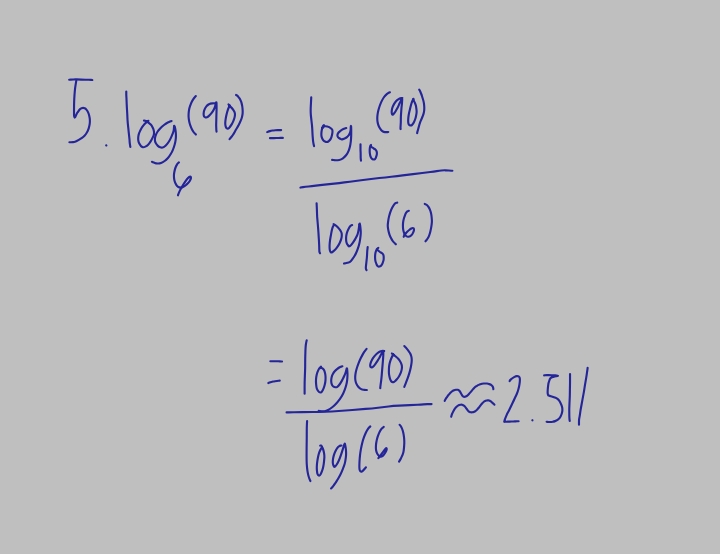 5. log₆(90) = log₁₀(90)
log₁₀(6)
= log(90)
log(6) ≈ 2.511